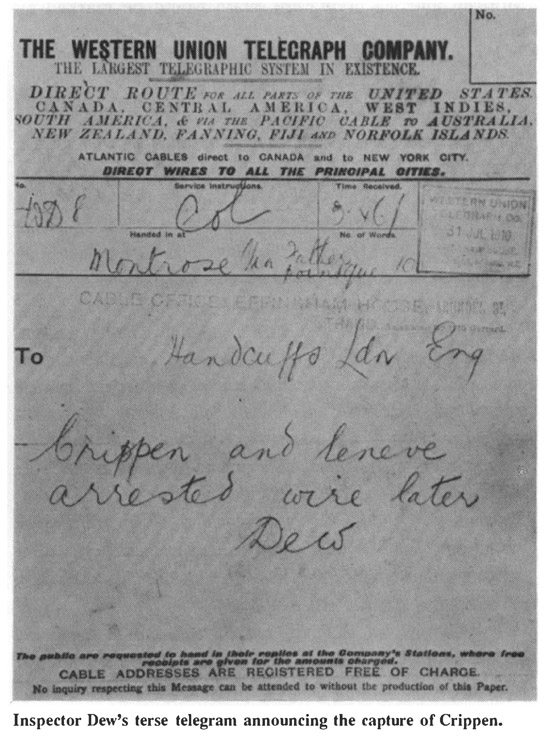 No.
THE WESTERN UNION TELEGRAPH COMPANY.
THE LARGEST TELEGRAPHIC SYSTEM IN EXISTENCE.
DIRECT ROUTE FOR ALL PARTS OF THE UNITED STATES.
CANADA, CENTRAL AMERICA, WEST INDIES,
SOUTH AMERICA, & VIA THE PACIFIC CABLE TO AUSTRALIA,
NEW ZEALAND, FANNING, FIJI AND NORFOLK ISLANDS.
ATLANTIC CABLES direct to CANADA and to NEW YORK CITY.
DIRECT WIRES TO ALL THE PRINCIPAL CITIES.
No. Service Instructions. Time Received.
Col
WESTERN UNION
TELEGRAPH CO.
31 JUL 1910
Handed in at No. of Words.
Montrose Via Father
Pointque 10
CABLE OFFICE, EFFINGHAM HOUSE, ARUNDEL ST.
To Handcuffs Ldn Eng
Crippen and leneve
arrested wire later
Dew
The public are requested to hand in their replies at the Company's Stations, where free
receipts are given for the amounts charged.
CABLE ADDRESSES ARE REGISTERED FREE OF CHARGE.
No inquiry respecting this Message can be attended to without the production of this Paper.
Inspector Dew's terse telegram announcing the capture of Crippen.